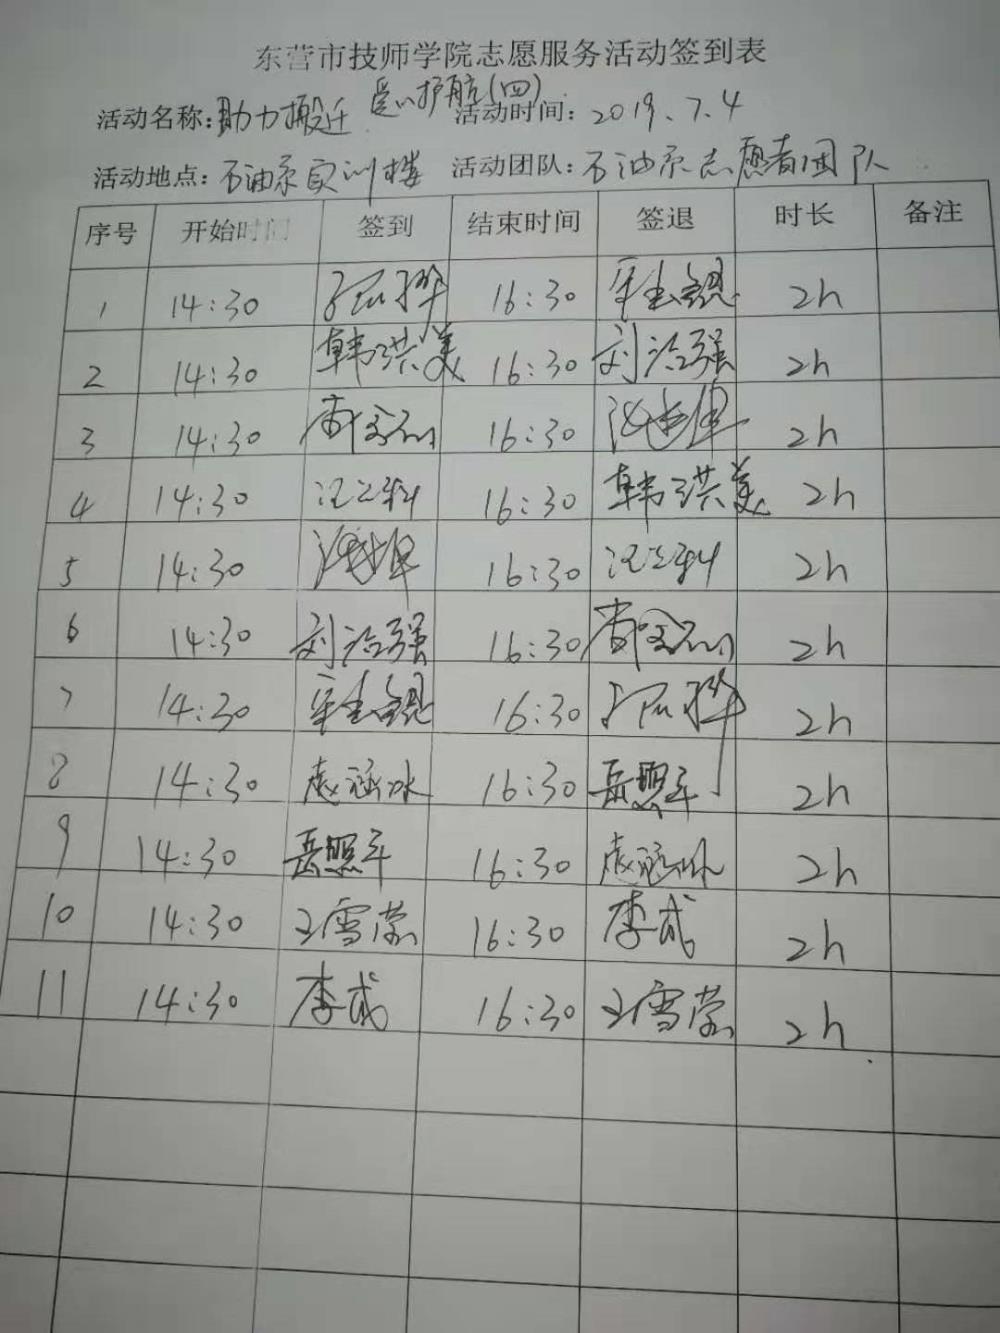 东营市技师学院志愿服务活动签到表
活动名称:助力搬迁 爱心护航(四) 活动时间: 2019.7.4
活动地点:石油系实训楼 活动团队:石油系志愿者团队
序号 开始时间 签到 结束时间 签退 时长 备注
1 14:30 16:30 2h
2 14:30 韩洪美 16:30 刘治强 2h
3 14:30 16:30 2h
4 14:30 16:30 韩洪美 2h
5 14:30 16:30 2h
6 14:30 刘治强 16:30 2h
7 14:30 16:30 2h
8 14:30 16:30 岳照军 2h
9 14:30 岳照军 16:30 2h
10 14:30 王雪莹 16:30 李斌 2h
11 14:30 李斌 16:30 王雪莹 2h